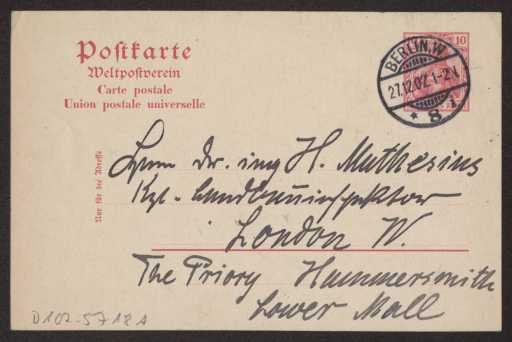 Postkarte
Weltpostverein
Carte postale
Union postale universelle
10
BERLIN.W
27.12.02.1-2N
* 8 i
Nur für die Adresse
Herrn Dr. ing H. Muthesius
Kgl. Landbauinspektor
London W.
The Priory Hammersmith
Lower Mall
D102-5718A